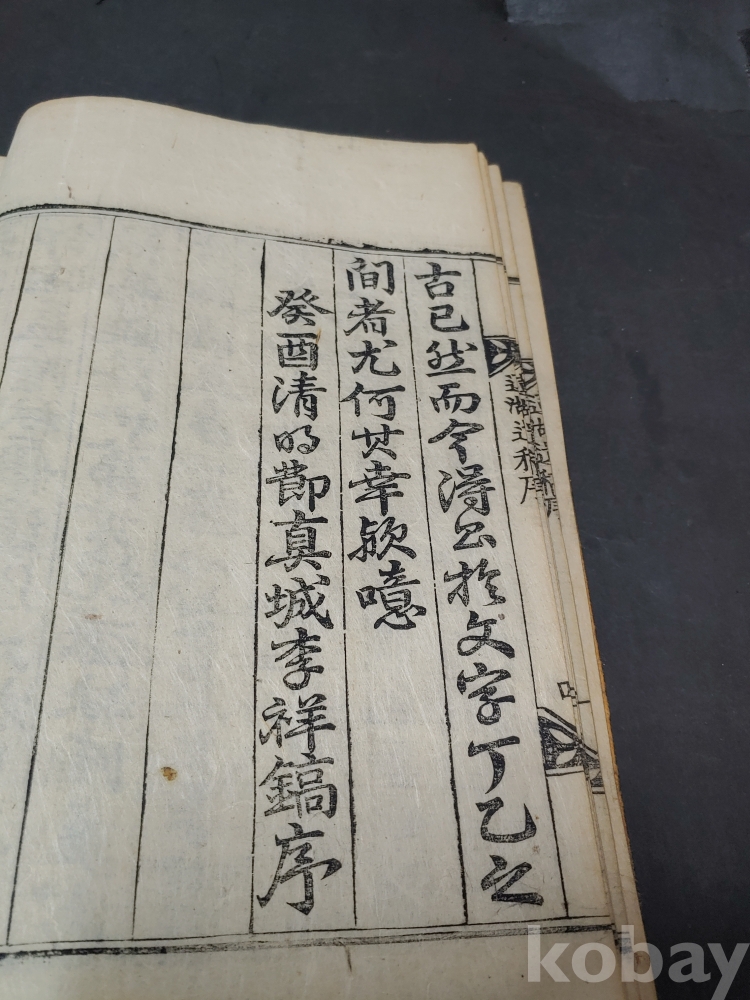 古已然而今得公於文字丁乙之
間者尤何其幸歟噫
癸酉清明節真城李祥鎬序
蓮湖遺稿序
kobay